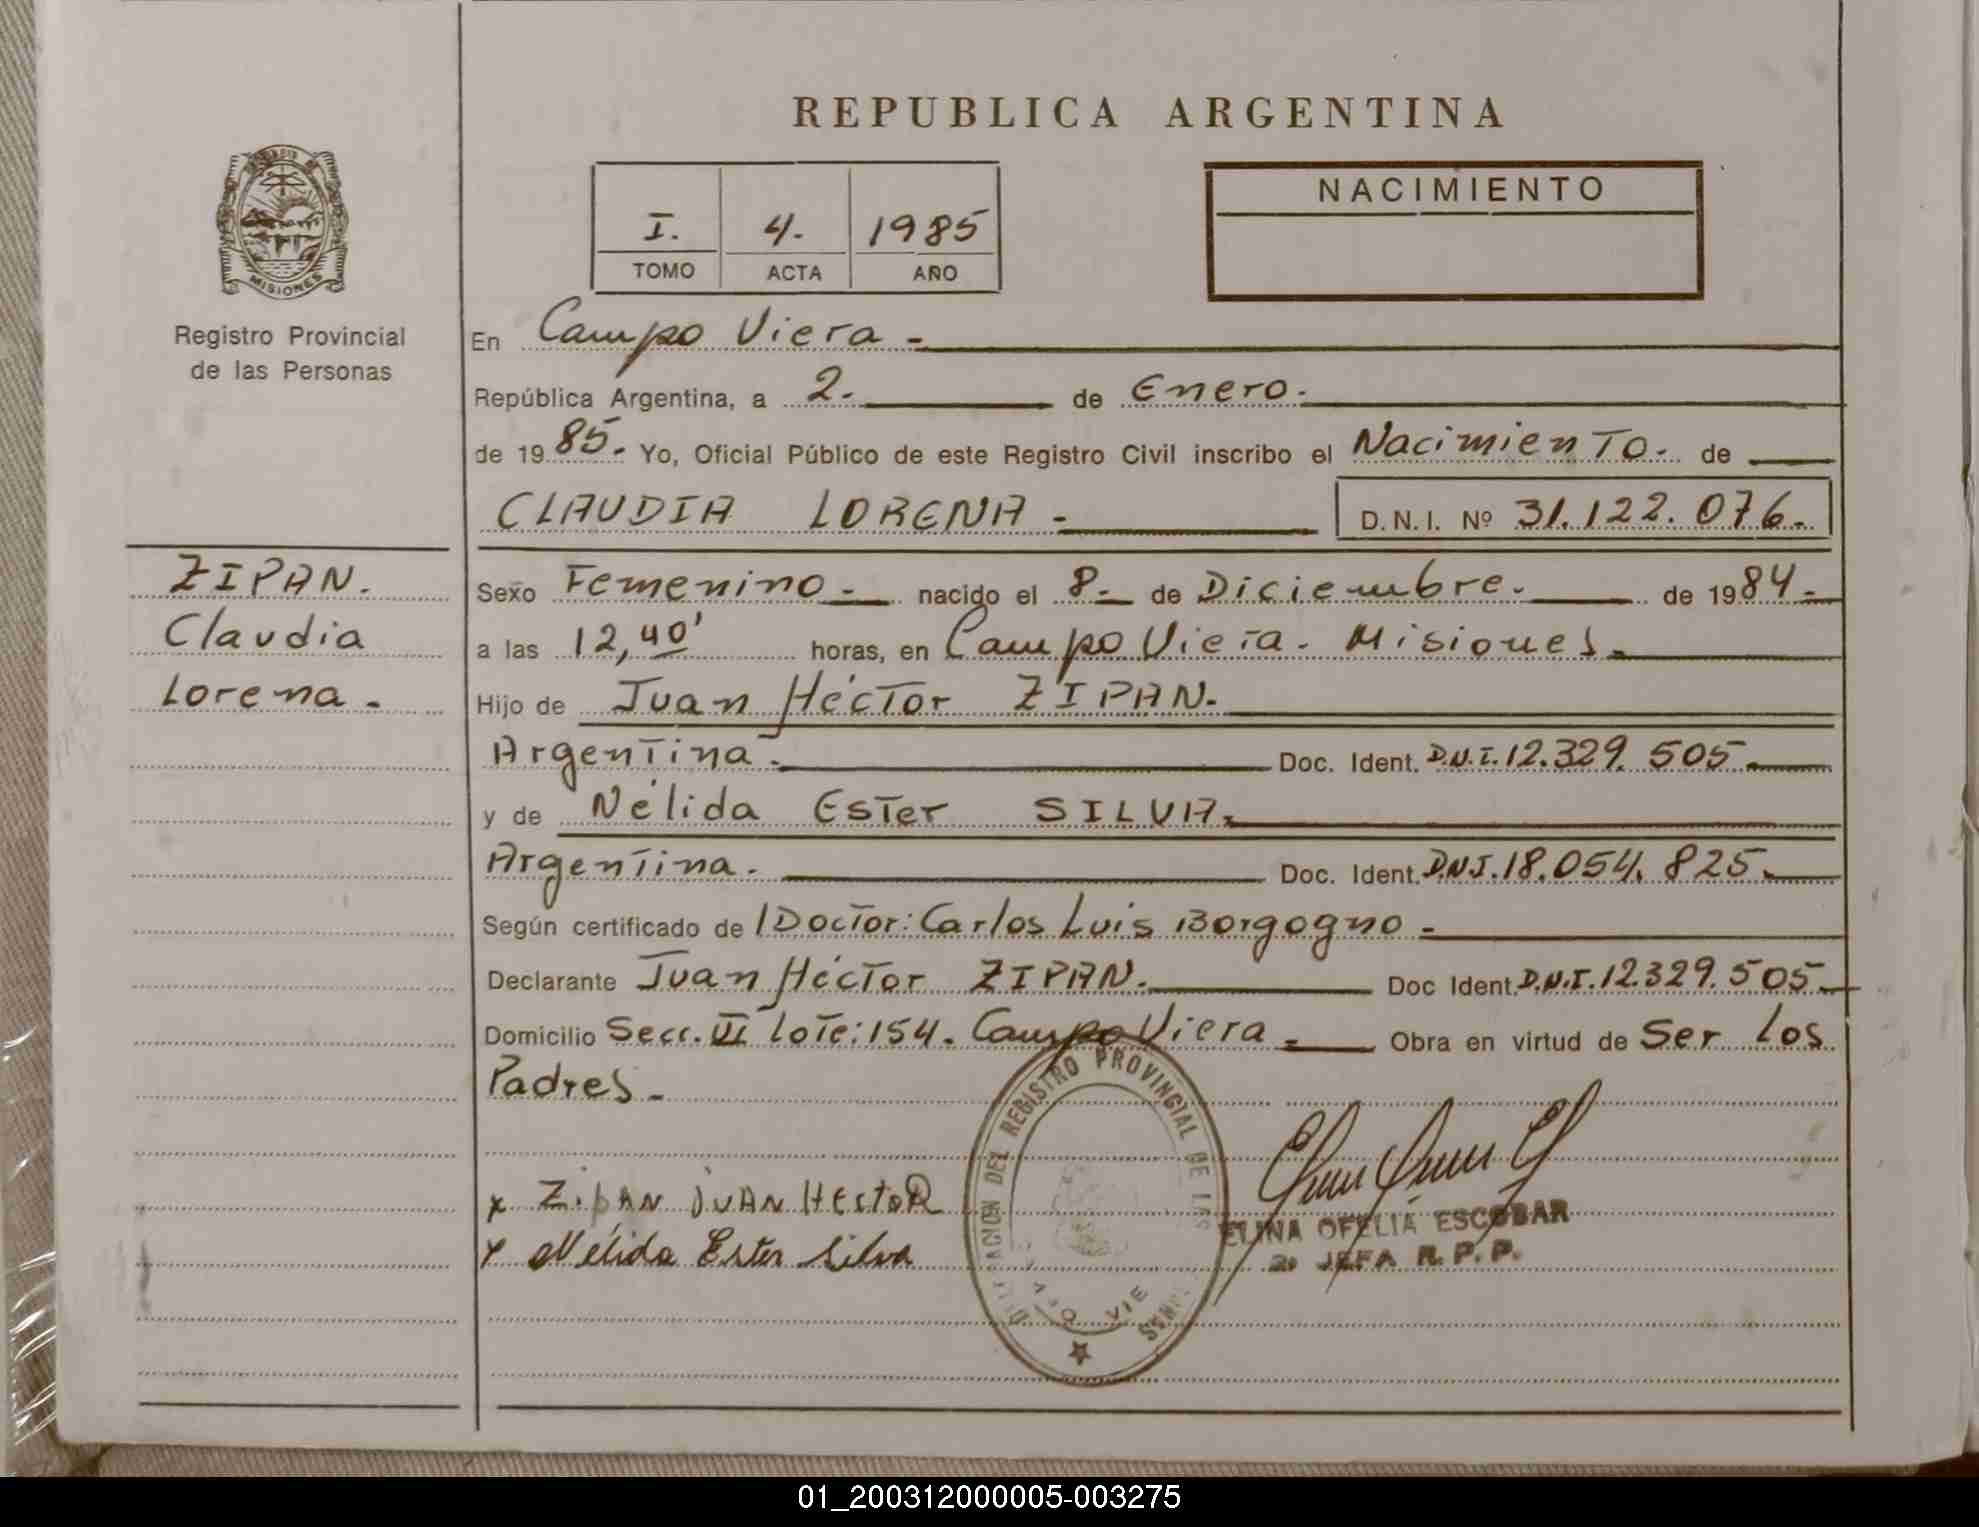 REPUBLICA ARGENTINA
MISIONES
Registro Provincial
de las Personas
I. 4. 1985
TOMO ACTA AÑO
NACIMIENTO
En Campo Viera -
República Argentina, a 2. de Enero.
de 1985. Yo, Oficial Público de este Registro Civil inscribo el Nacimiento. de
CLAUDIA LORENA - D.N.I. Nº 31.122.076.
ZIPAN.
Claudia
Lorena.
Sexo Femenino. nacido el 8. de Diciembre. de 1984.
a las 12,40' horas, en Campo Viera. Misiones.
Hijo de Juan Héctor ZIPAN.
Argentina. Doc. Ident. D.N.I. 12.329.505
y de Nélida Ester SILVA.
Argentina. Doc. Ident. D.N.I. 18.054.825.
Según certificado de / Doctor: Carlos Luis Borgogno -
Declarante Juan Héctor ZIPAN. Doc Ident. D.N.I. 12.329.505
Domicilio Secc. VI Lote: 154. Campo Viera Obra en virtud de Ser los
Padres.
x ZiPAN JUAN HEctoR
x Nélida Ester Silva
DEL REGISTRO PROVINCIAL DE LAS
ELINA OFELIA ESCOBAR
2º JEFA R.P.P.
01_200312000005-003275